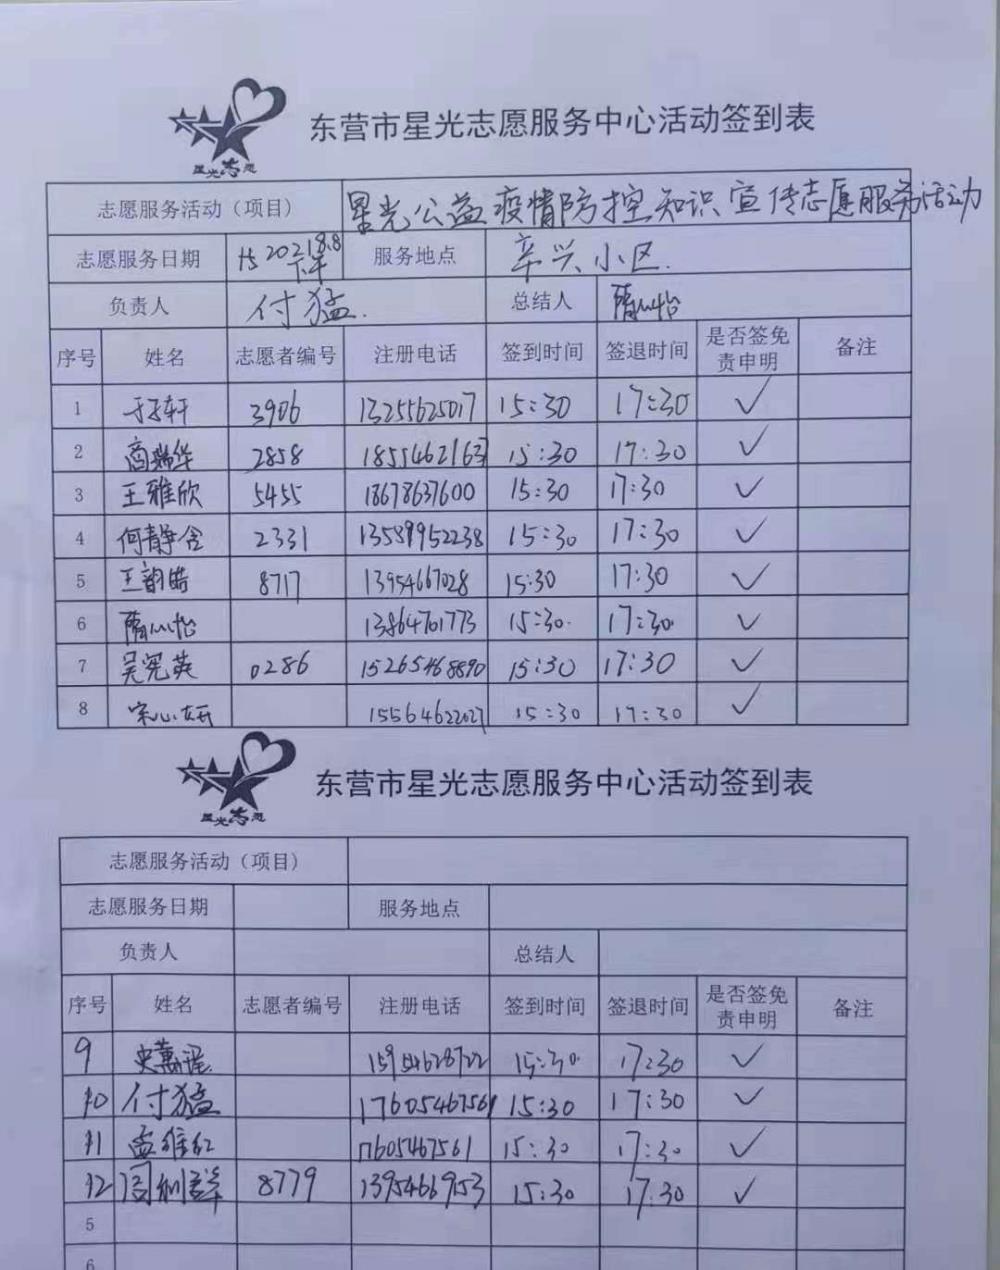 星光志愿
东营市星光志愿服务中心活动签到表
志愿服务活动（项目） 星光公益疫情防控知识宣传志愿服务活动
志愿服务日期 2021.8.8 下午 服务地点 辛兴小区.
负责人 付猛. 总结人 隋心怡
序号 姓名 志愿者编号 注册电话 签到时间 签退时间 是否签免责申明 备注
1 于子轩 3906 13255625017 15:30 17:30 ✓
2 商瑞华 2858 1855462163 15:30 17:30 ✓
3 王雅欣 5455 18678637600 15:30 17:30 ✓
4 何静含 2331 13589952238 15:30 17:30 ✓
5 王韵皓 8717 13954667028 15:30 17:30 ✓
6 隋心怡 13864701773 15:30. 17:30 ✓
7 吴宪英 0286 15265468890 15:30 17:30 ✓
8 宋心研 15564622027 15:30 17:30 ✓
星光志愿
东营市星光志愿服务中心活动签到表
志愿服务活动（项目）
志愿服务日期 服务地点
负责人 总结人
序号 姓名 志愿者编号 注册电话 签到时间 签退时间 是否签免责申明 备注
9 15954628722 15:30 17:30 ✓
10 付猛 17605467561 15:30 17:30 ✓
11 孟维红 17605467561 15:30 17:30 ✓
12 8779 13954669153 15:30 17:30 ✓
5
6